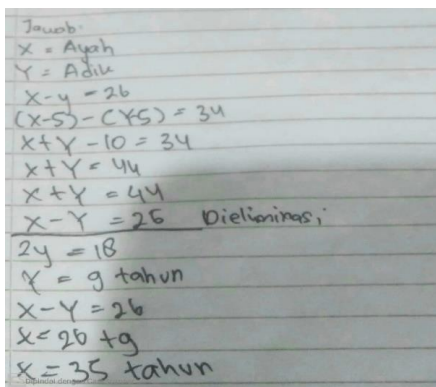 Jawab.
X = Ayah
Y = Adik
X - y = 26
(X-5) - (Y-5) = 34
X + Y - 10 = 34
X + Y = 44
X + Y = 44
X - Y = 26 Dieliminasi
2y = 18
Y = 9 tahun
X - Y = 26
X = 26 + 9
X = 35 tahun